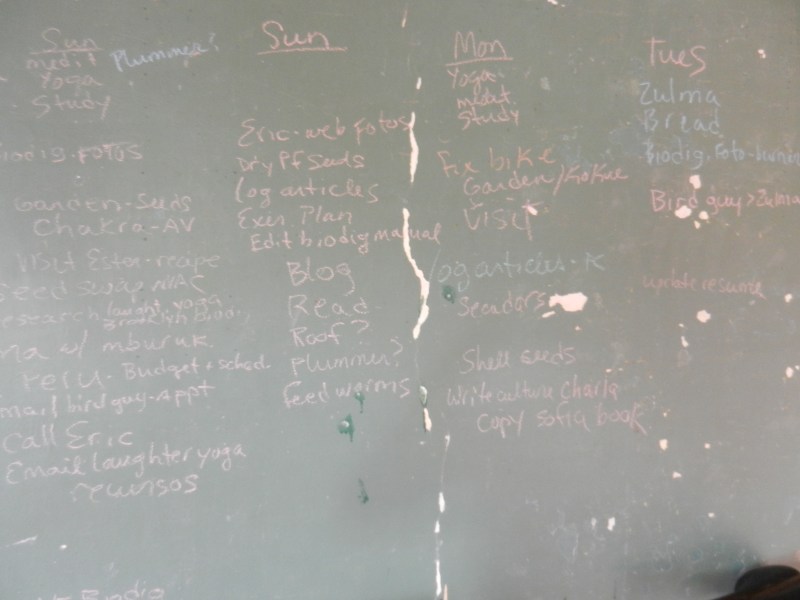 Sun
medit
Plummer?
Yoga
Study
iodig. fotos
Garden-Seeds
Chakra-AV
Visit Ester-recipe
seed swap
laught yoga
Brooklyn Biodi
w/ mburuk
Peru - Budget + sched.
mail birdguy-appt
call Eric
Email laughter yoga
recursos
Biodig
Sun
Eric-web fotos
Dry PF seeds
Log articles
Exer Plan
Edit biodig manual
Blog
Read
Roof?
Plummer?
feed worms
Mon
Yoga
medit
Study
Fix bike
Garden/Kokue
Visit
og articles-K
Secadors
Shell seeds
Write culture Charla
Copy sofia book
Tues
Zulma
Bread
Biodig. foto-
Bird guy > Zulma
update resume